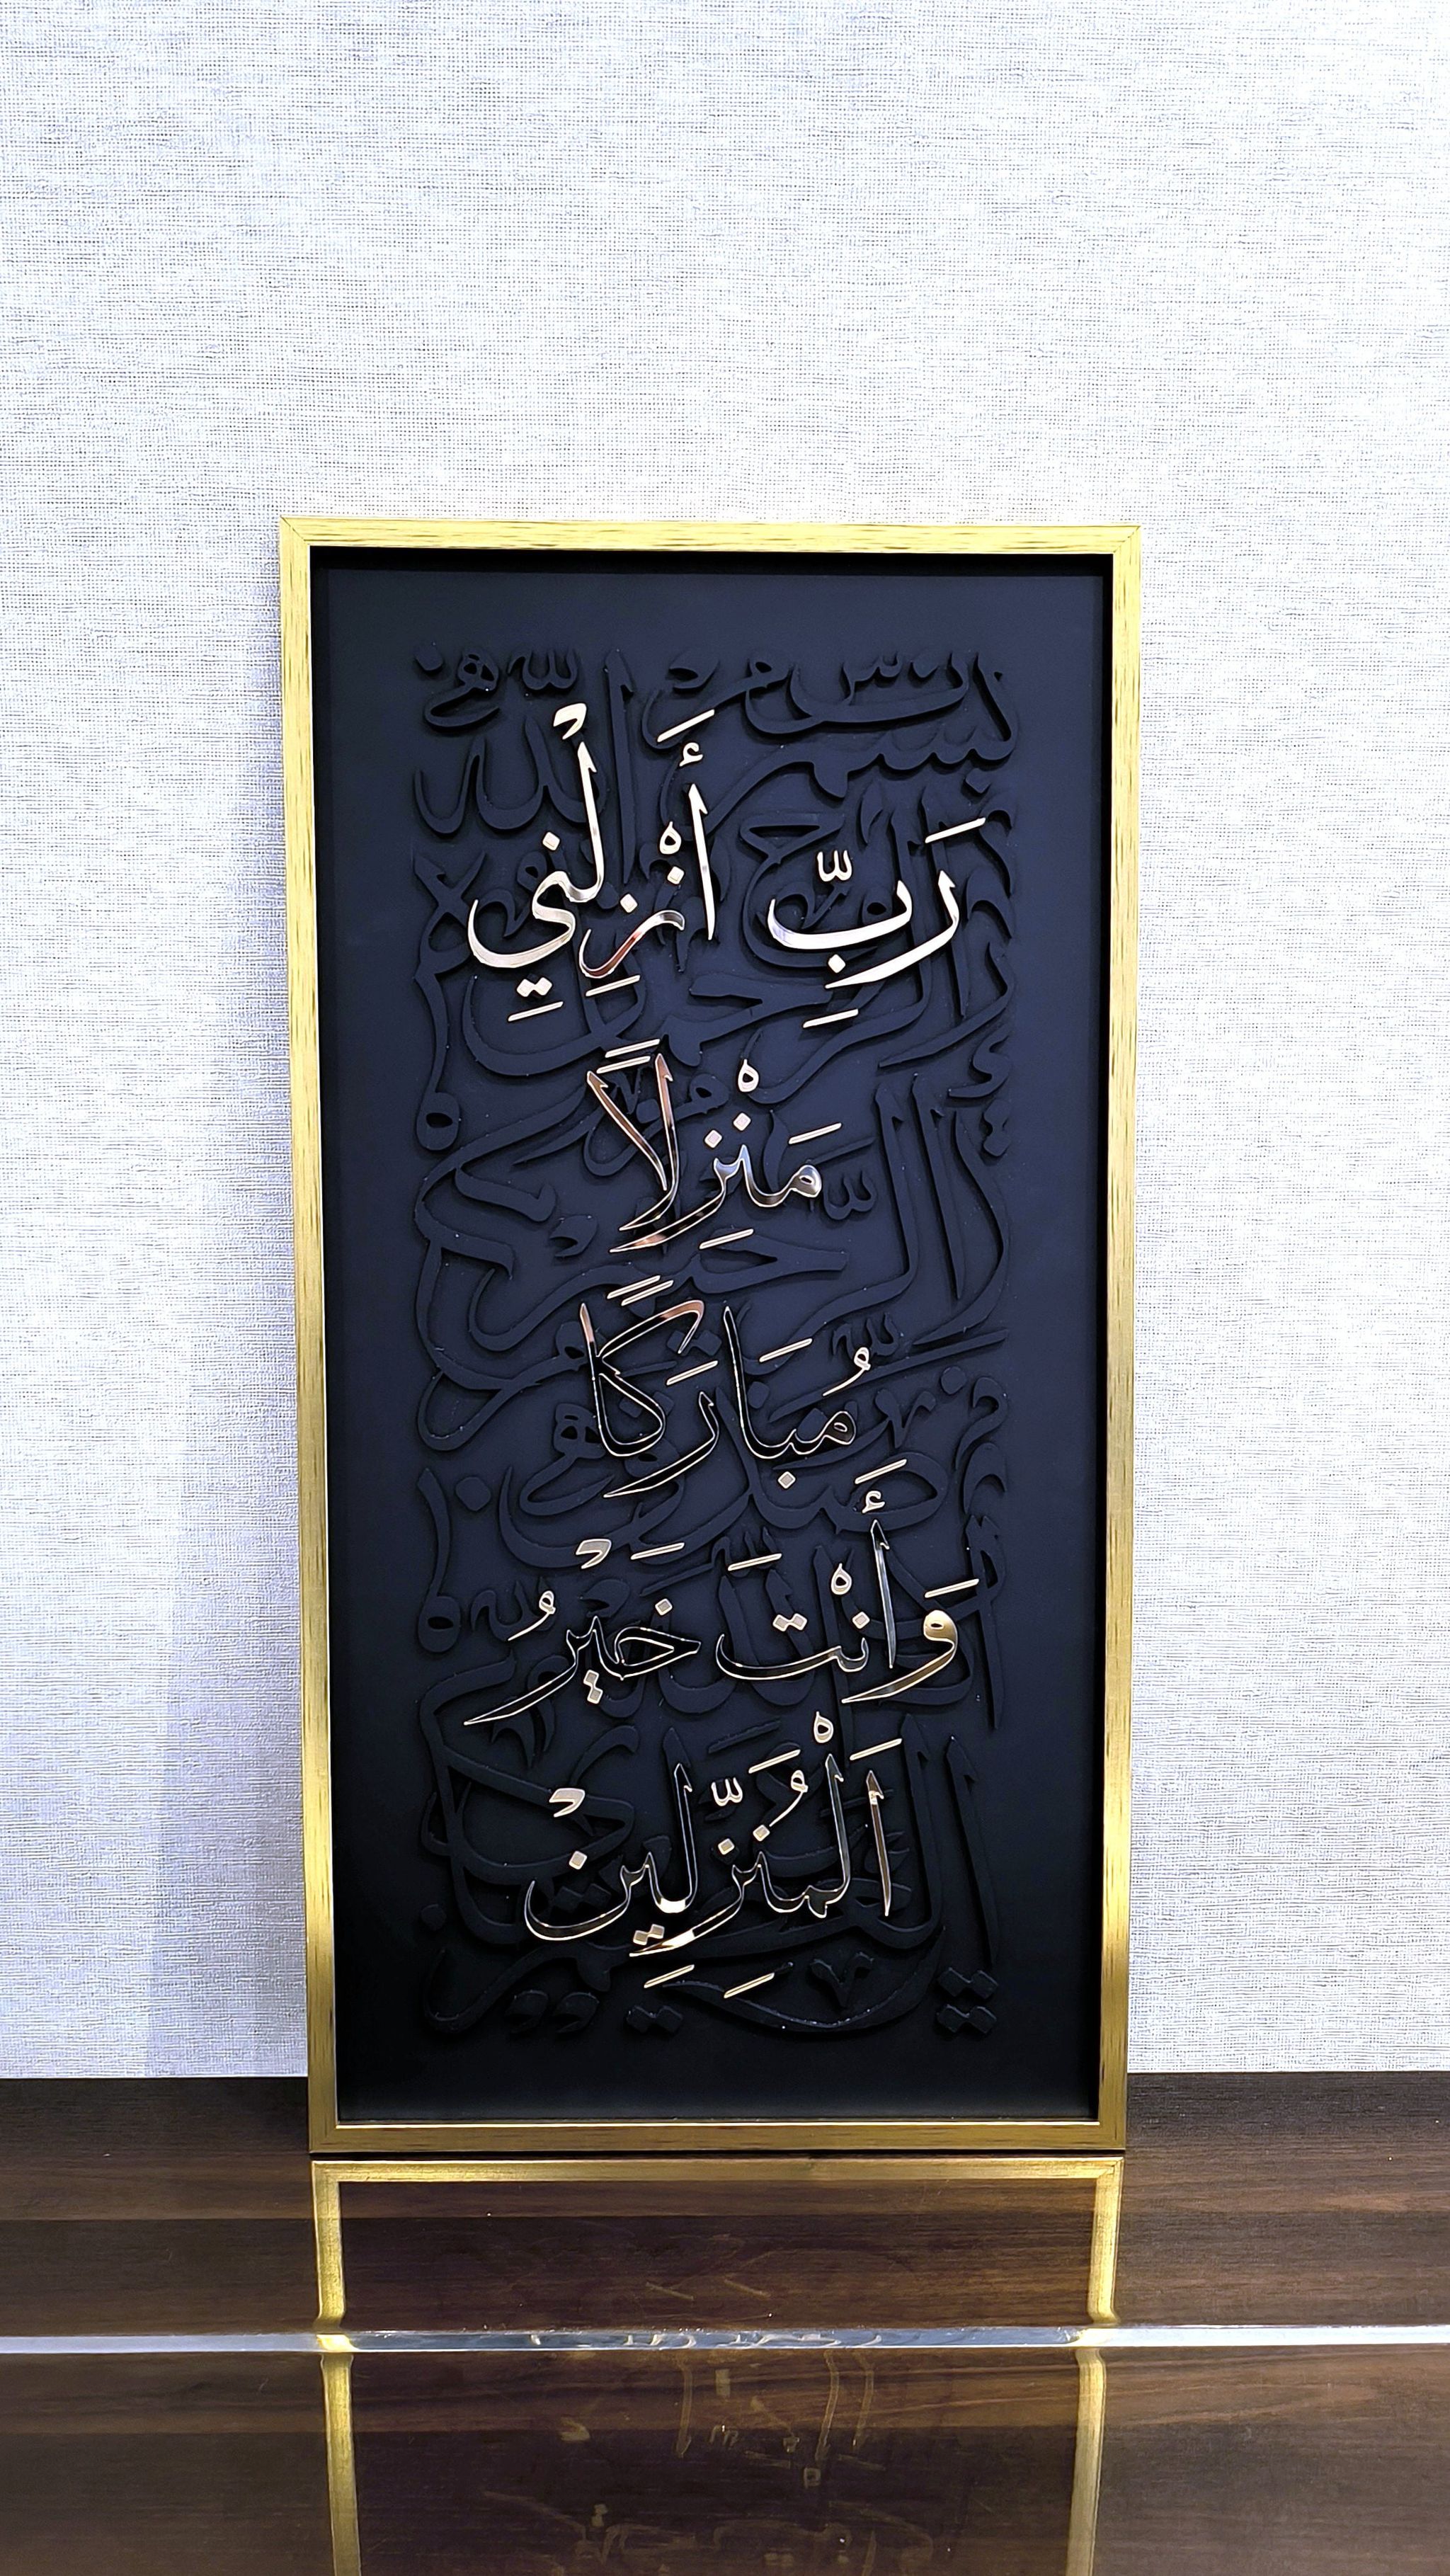 رَبِّ أَنْزِلْنِي
مَنْزِلاً
مُبَارَكًا
وَأَنْتَ خَيْرُ
اَلْمُنَزِّلِين
بسم الله
الرحمن
الرحيم